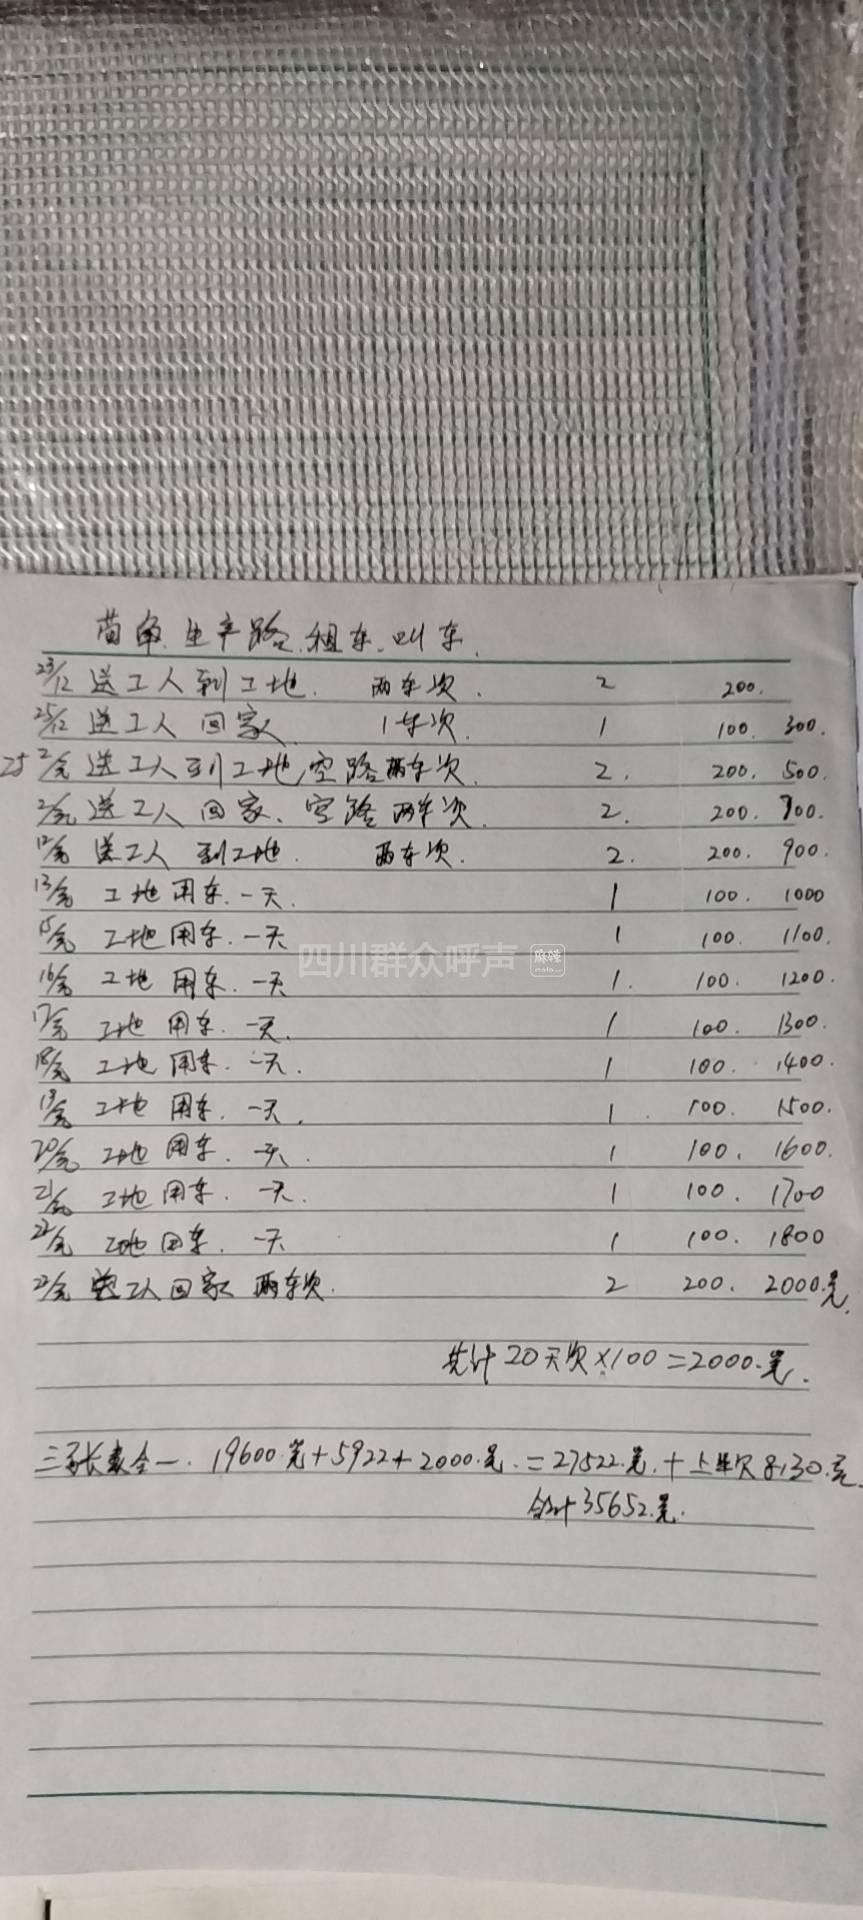 生产路.租车.叫车.
23/12 送工人到工地. 两车次. 2 200.
25/12 送工人回家 1车次. 1 100. 300.
25 2/元 送工人到工地,空路两车次. 2. 200. 500.
2/元 送工人回家、空路两车次. 2. 200. 700.
12/元 送工人到工地. 两车次. 2. 200. 900.
13/元 工地用车.一天. 1 100. 1000
15/元 工地用车.一天 1 100. 1100.
四川群众呼声 麻辣
16/元 工地用车.一天 1. 100. 1200.
17/元 工地用车.一天. 1 100. 1300.
18/元 工地用车.一天. 1 100. 1400.
19/元 工地用车.一天. 1. 100. 1500.
20/元 工地用车.一天. 1 100. 1600.
21/元 工地用车.一天. 1 100. 1700
22/元 工地用车.一天 1 100. 1800
22/元 送工人回家 两车次. 2 200. 2000.元.
共计20天次×100=2000.元.
三张表合一.19600.元+5922+2000.元.=27522.元.+上半欠8130.元.
合计35652.元.